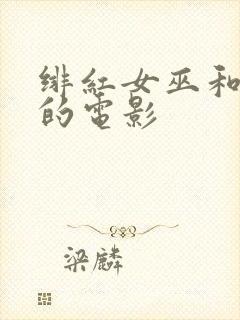 绯紅女巫和
的電影
梁麟